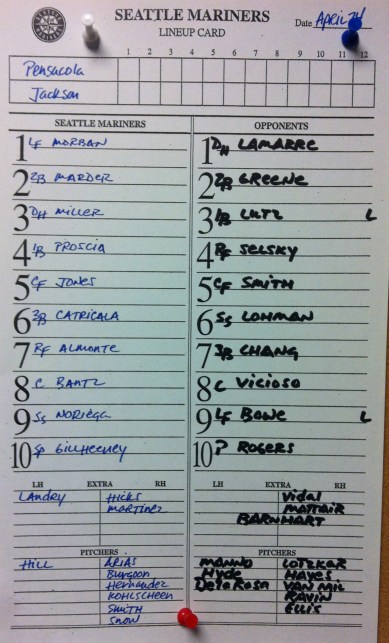 SEATTLE MARINERS
LINEUP CARD
Date April 24
1 2 3 4 5 6 7 8 9 10 11 12
Pensacola
Jackson
SEATTLE MARINERS OPPONENTS
1 LF MORBAN 1 DH LAMARRE
2 2B MARDER 2 2B GREENE
3 DH MILLER 3 1B LUTZ L
4 1B PROSCIA 4 RF SELSKY
5 CF JONES 5 CF SMITH
6 3B CATRICALA 6 SS LOHMAN
7 RF ALMONTE 7 3B CHANG
8 C BANTZ 8 C VICIOSO
9 SS NORIEGA 9 LF BOWE L
10 SP GILLHEENEY 10 P ROGERS
LH EXTRA RH LH EXTRA RH
LANDRY HICKS Vidal
MARTINEZ MATTAIR
BARNHART
PITCHERS PITCHERS
HILL ARIAS MANNO LOTZKAR
Burgoon Hyde HAYES
Hernandez DelaRosa VAN MIL
KOHLSCHEEN RAVIN
SMITH ELLIS
SNOW